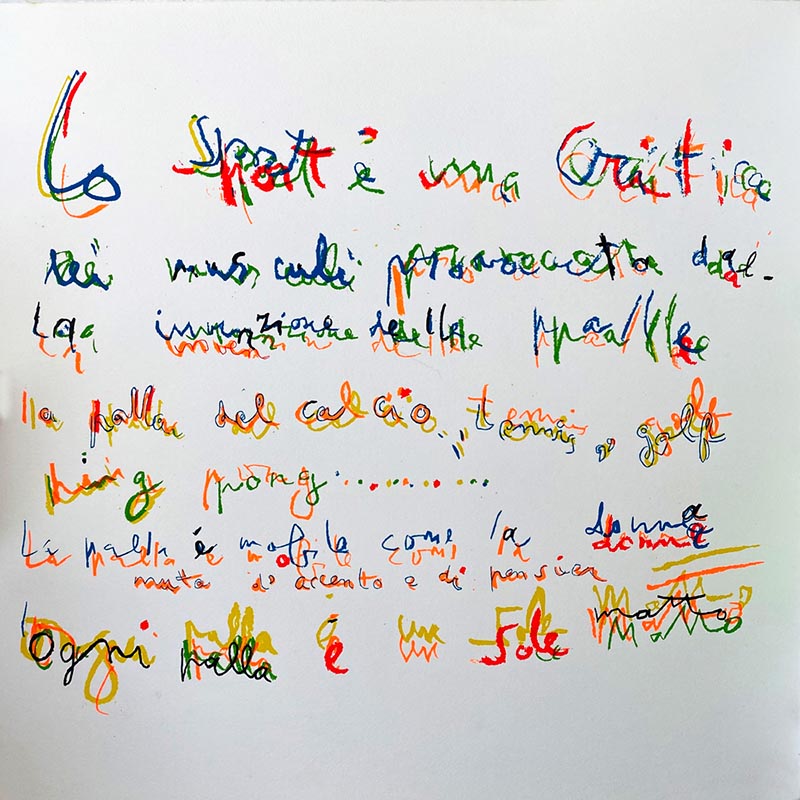 Lo Sport è una Critica
dei muscoli provocata dal-
La invenzione delle palle
la palla del calcio, tennis, golf
ping pong..........
La palla è mobile come la donna
muta d'accento e di pensier
Ogni palla è un Sole matto